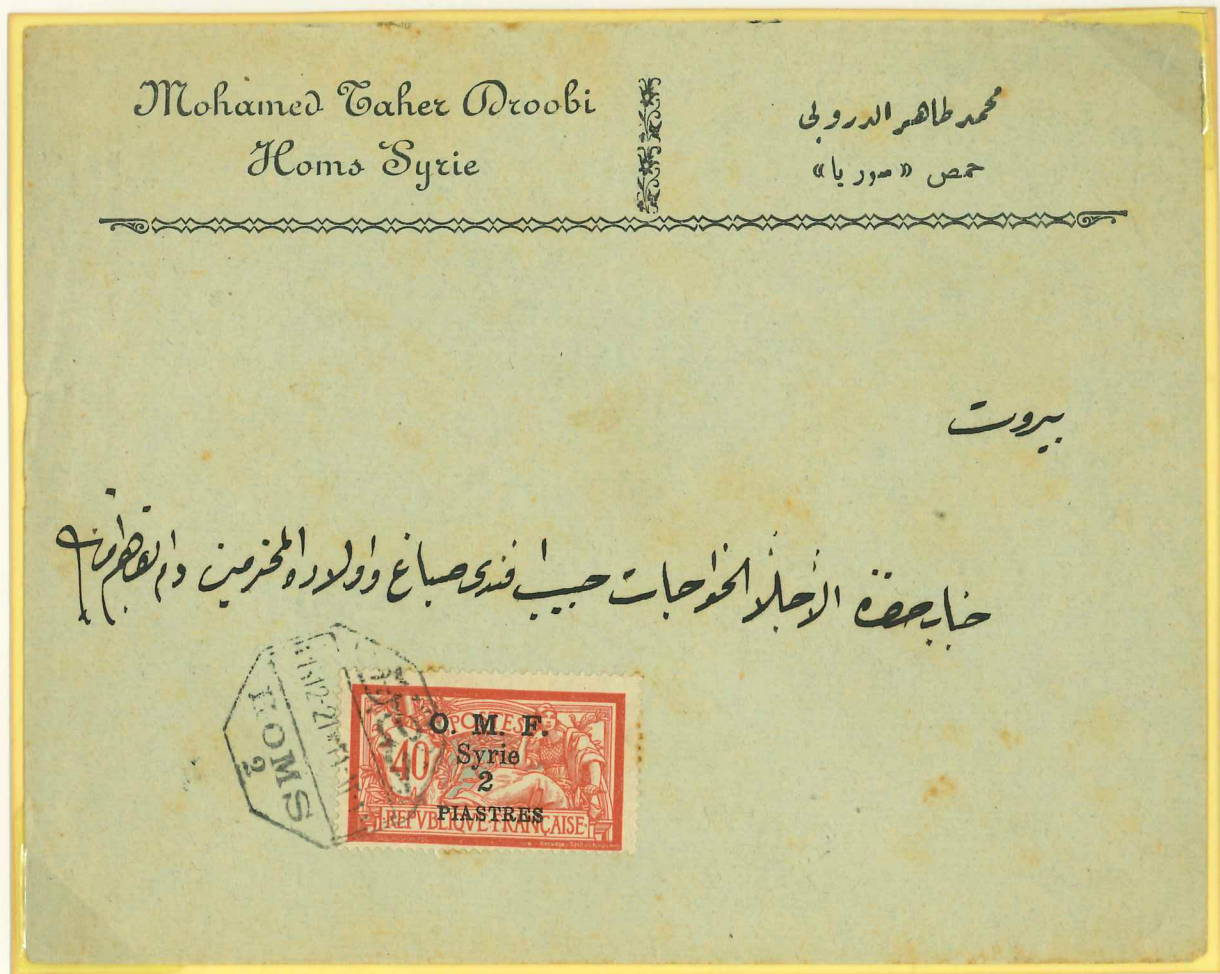 Mohamed Taher Droobi
Homs Syrie
محمد طاهر الدروبي
حمص «سوريا»
بيروت
جناب حضرة الأجلاء الخواجات حبيب افندي صباغ واولاده المحترمين دام بقاهم
HOMS
2
POSTES
O. M. F.
Syrie
2
PIASTRES
40
REPVBLIQVE FRANÇAISE